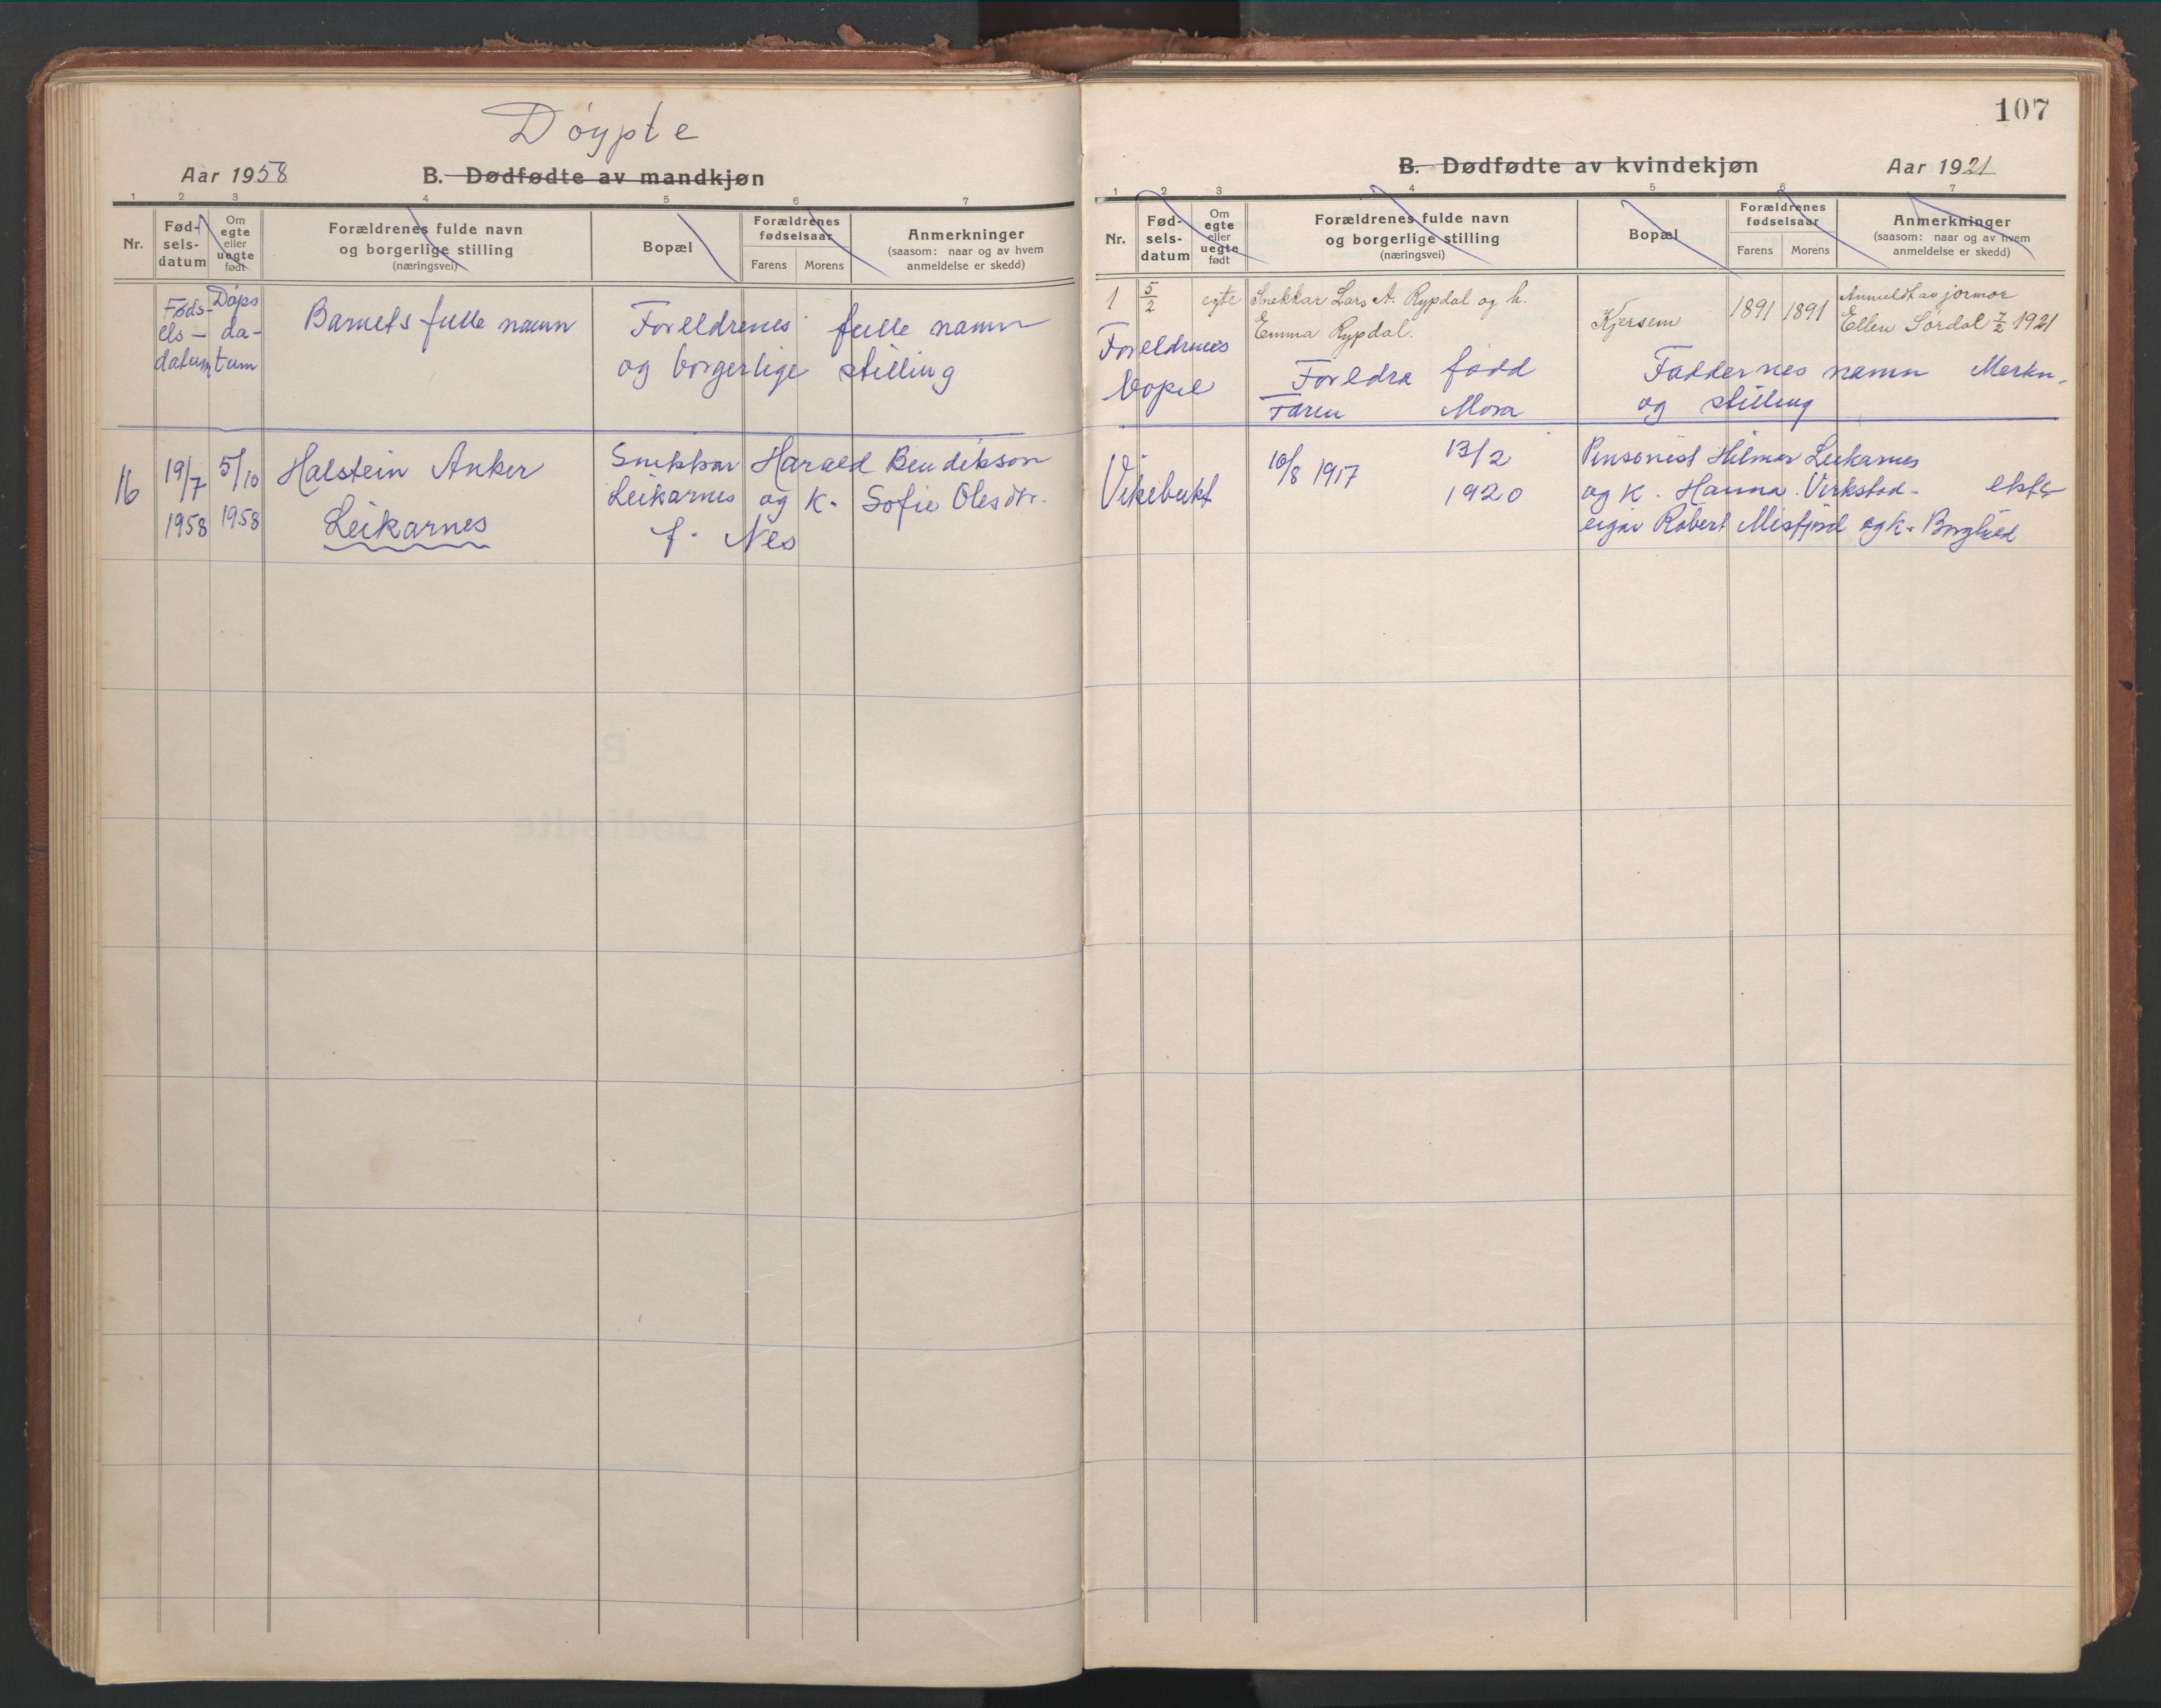 Døypte
Aar 1958 B. Dødfødte av mandkjøn
1 2 3 4 5 6 7
Nr.
Fød-
sels-
datum
Om
egte
eller
uegte
født
Forældrenes fulde navn
og borgerlige stilling
(næringsvei)
Bopæl
Forældrenes
fødselsaar
Farens Morens
Anmerkninger
(saasom: naar og av hvem
anmeldelse er skedd)
Føds-
els-
datum
Dåps
da-
tum
Barnets fulle namn
Foreldrenes fulle namn
og borgerlige stilling
16
19/7
1958
5/10
1958
Halstein Anker
Leikarnes
Snekkar Harald Bendikson
Leikarnes og k. Sofie Olesdtr.
f. Nes
107
B. Dødfødte av kvindekjøn Aar 1921
1 2 3 4 5 6 7
Nr.
Fød-
sels-
datum
Om
egte
eller
uegte
født
Forældrenes fulde navn
og borgerlige stilling
(næringsvei)
Bopæl
Forældrenes
fødselsaar
Farens Morens
Anmerkninger
(saasom: naar og av hvem
anmeldelse er skedd)
1 5/2 egte Snekkar Lars A. Rypdal og h.
Emma Rypdal.
Kjersem 1891 1891
Anmeldt av jormor
Ellen Sørdal 7/2 1921
Foreldrenes
bopel
Foreldra fødd
Faren Mora
Faddernes namn
og stilling
Merkn.
Vikebukt
10/8 1917
13/2
1920
Pensonist Hilmar Leikarnes
og k. Hanna. Verkstad-
eigar Robert Misfjord og k. Borghild
ekte